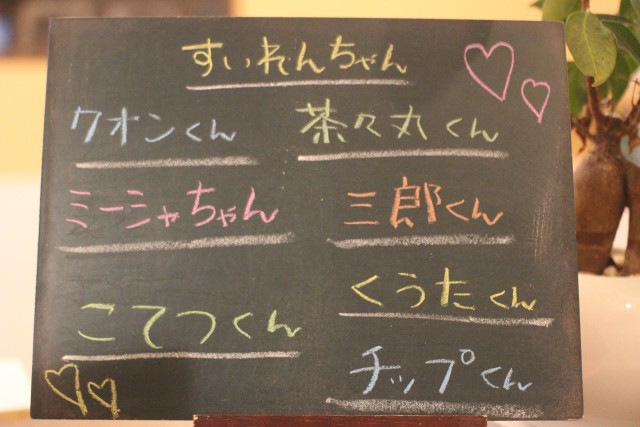 すいれんちゃん
クオンくん
茶々丸くん
ミーシャちゃん
三郎くん
こてつくん
くうたくん
チップくん